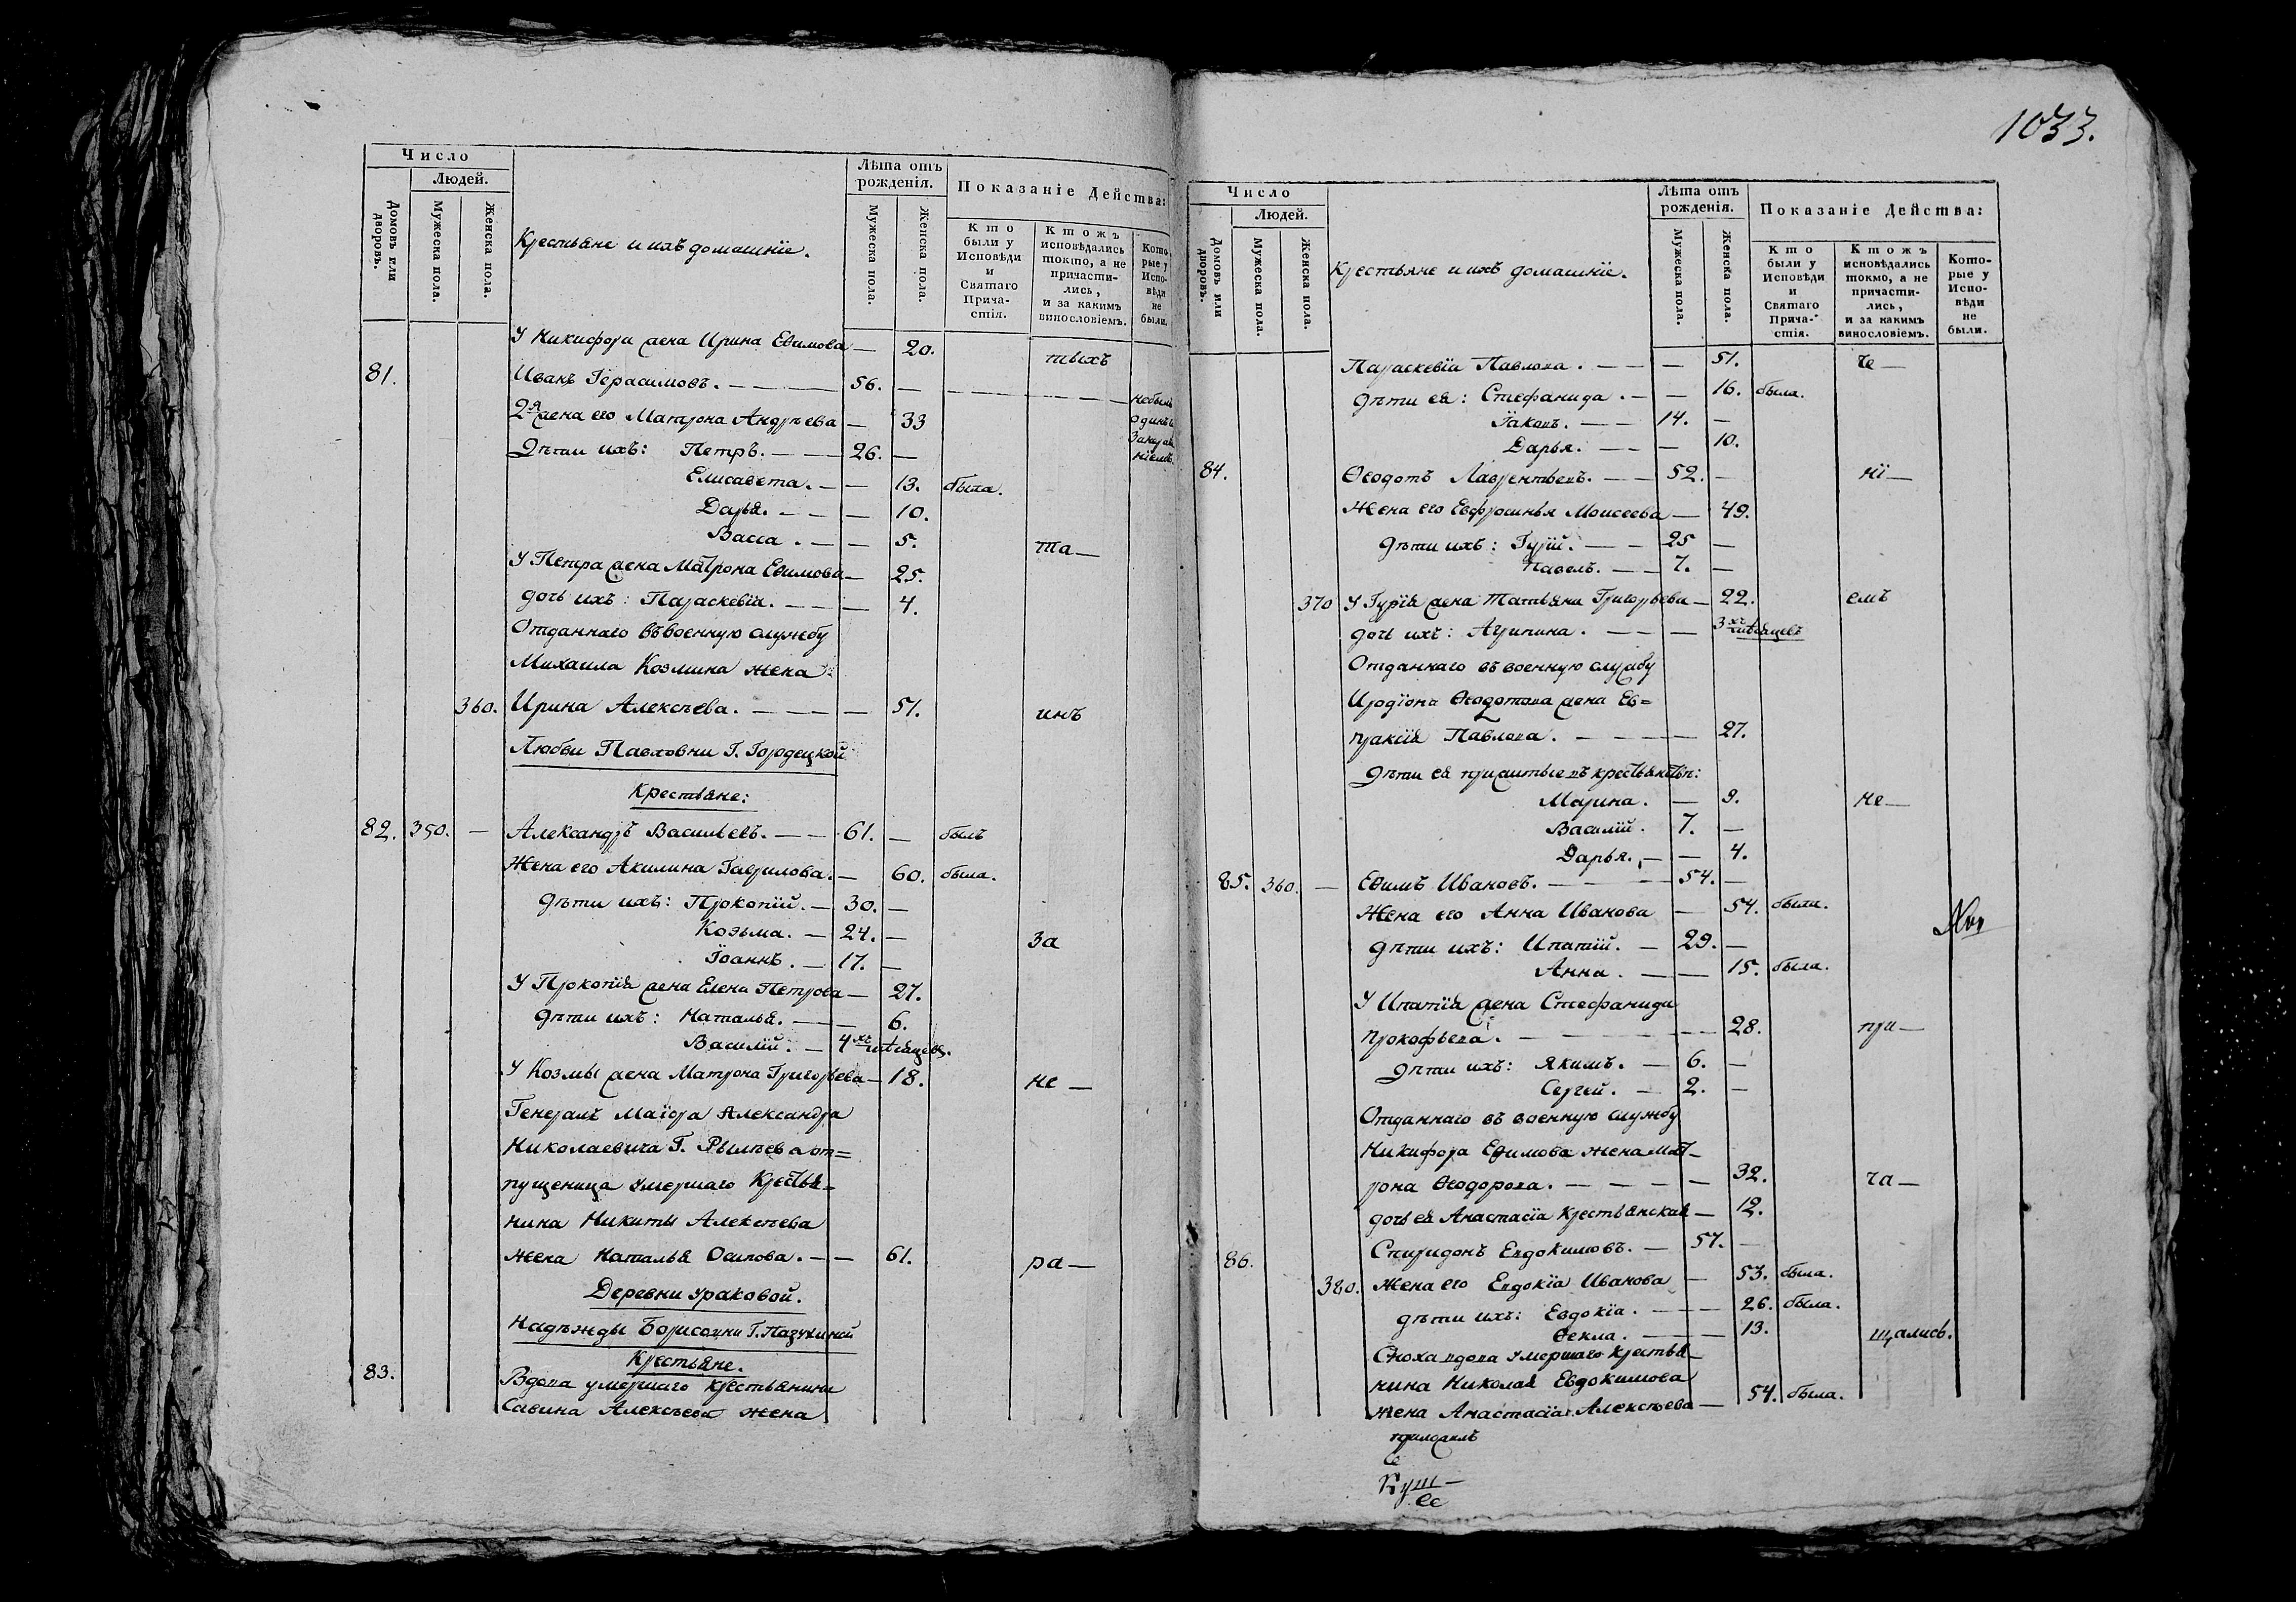 1033.
Число
Людей.
Домовъ или дворовъ.
Мужеска пола.
Женска пола.
Крестьяне и ихъ домашнїе.
Лѣта отъ рожденія.
Мужеска пола.
Женска пола.
Показаніе Действа:
Кто были у Исповѣди и Святаго Прича-стія.
Ктожъ исповѣдались токмо, а не причасти-лись, и за какимъ винословіемъ.
Кото-рые у Испо-вѣди не были.
У Никифора жена Ирина Ефимова — 20. тыхъ
81. Иванъ Герасимовъ. — 56. — небылъ
2я жена его Матрона Андрѣева — 33
Дѣти ихъ: Петръ. — 26. —
Елисавета. — 13. была.
Дарья. — 10.
Васса. — 5. та—
У Петра жена Матрона Ефимова — 25.
дочь ихъ: Параскевїя. — 4.
Отданнаго въ военную службу
Михаила Козмина жена
360. Ирина Алексѣева. — 51. инъ
Любви Павловни Г. Городецкой
Крестьяне:
82. 350. — Александръ Васильевъ. — 61. — былъ
Жена его Акилина Гаврилова. — 60. была.
Дѣти ихъ: Прокопїй. — 30. —
Козьма. — 24. — за
Їоаннъ. — 17. —
У Прокопїя жена Елена Петрова — 27.
Дѣти ихъ: Наталья. — 6.
Василїй. — 4хъ мѣсяцевъ.
У Козмы жена Матрона Григорьева — 18. не —
Генералъ Маїора Александра
Николаевича Г. Рылѣева от=
пущеница умершаго Крестья-
нина Никиты Алексѣева
жена Наталья Осипова. — 61. ра—
Деревни Ураковой.
Надѣжды Борисовни Г. Пазухиной
Крестьяне.
83. Вдова умершаго крестьянина
Савина Алексѣева жена
Число
Людей.
Домовъ или дворовъ.
Мужеска пола.
Женска пола.
Крестьяне и ихъ домашнїе.
Лѣта отъ рожденія.
Мужеска пола.
Женска пола.
Показаніе Действа:
Кто были у Исповѣди и Святаго Прича-стія.
Ктожъ исповѣдались токмо, а не причасти-лись, и за какимъ винословіемъ.
Кото-рые у Испо-вѣди не были.
Параскевїя Павлова. — 51. че—
Дѣти ея: Стефанида. — 16. была.
Їаковъ. — 14. —
Дарья. — 10.
84. Ѳеодотъ Лаврентьевъ. — 52. — нї—
Жена его Евфросинья Моисеева — 49.
Дѣти ихъ: Гурїй. — 25 —
Павелъ. — 7. —
370 У Гурїя жена Татьяна Григорьева — 22. емъ
дочь ихъ: Агрипина. — 3хъ мѣсяцевъ
Отданнаго въ военную службу
Иродїона Ѳеодотова жена Ев=
пракїя Павлова. — 27.
Дѣти ея прижитые въ крестьянствѣ:
Марина. — 9. не—
Василїй. 7. —
Дарья. — 4.
85. 360. — Ефимъ Ивановъ. — 54. —
Жена его Анна Иванова — 54. была.
Дѣти ихъ: Ипатїй. — 29. —
Анна. — 15. была.
У Ипатїя жена Стефанида
Прокофьева. — 28. при—
Дѣти ихъ: Якимъ. — 6. —
Сергей. — 2. —
Отданнаго въ военную службу
Никифора Ефимова жена Мат-
рона Ѳеодорова. — 32. ча—
дочь ея Анастасїа Крестьянская — 12.
86. Спиридонъ Евдокимовъ. — 57. —
380. Жена его Евдокїа Иванова — 53. была.
Дѣти ихъ: Евдокїа. — 26. была.
Ѳекла. — 13. щались.
Сноха вдова умершаго крестья-
нина Николая Евдокимова
жена Анастасїа Алексѣева — 54. была.